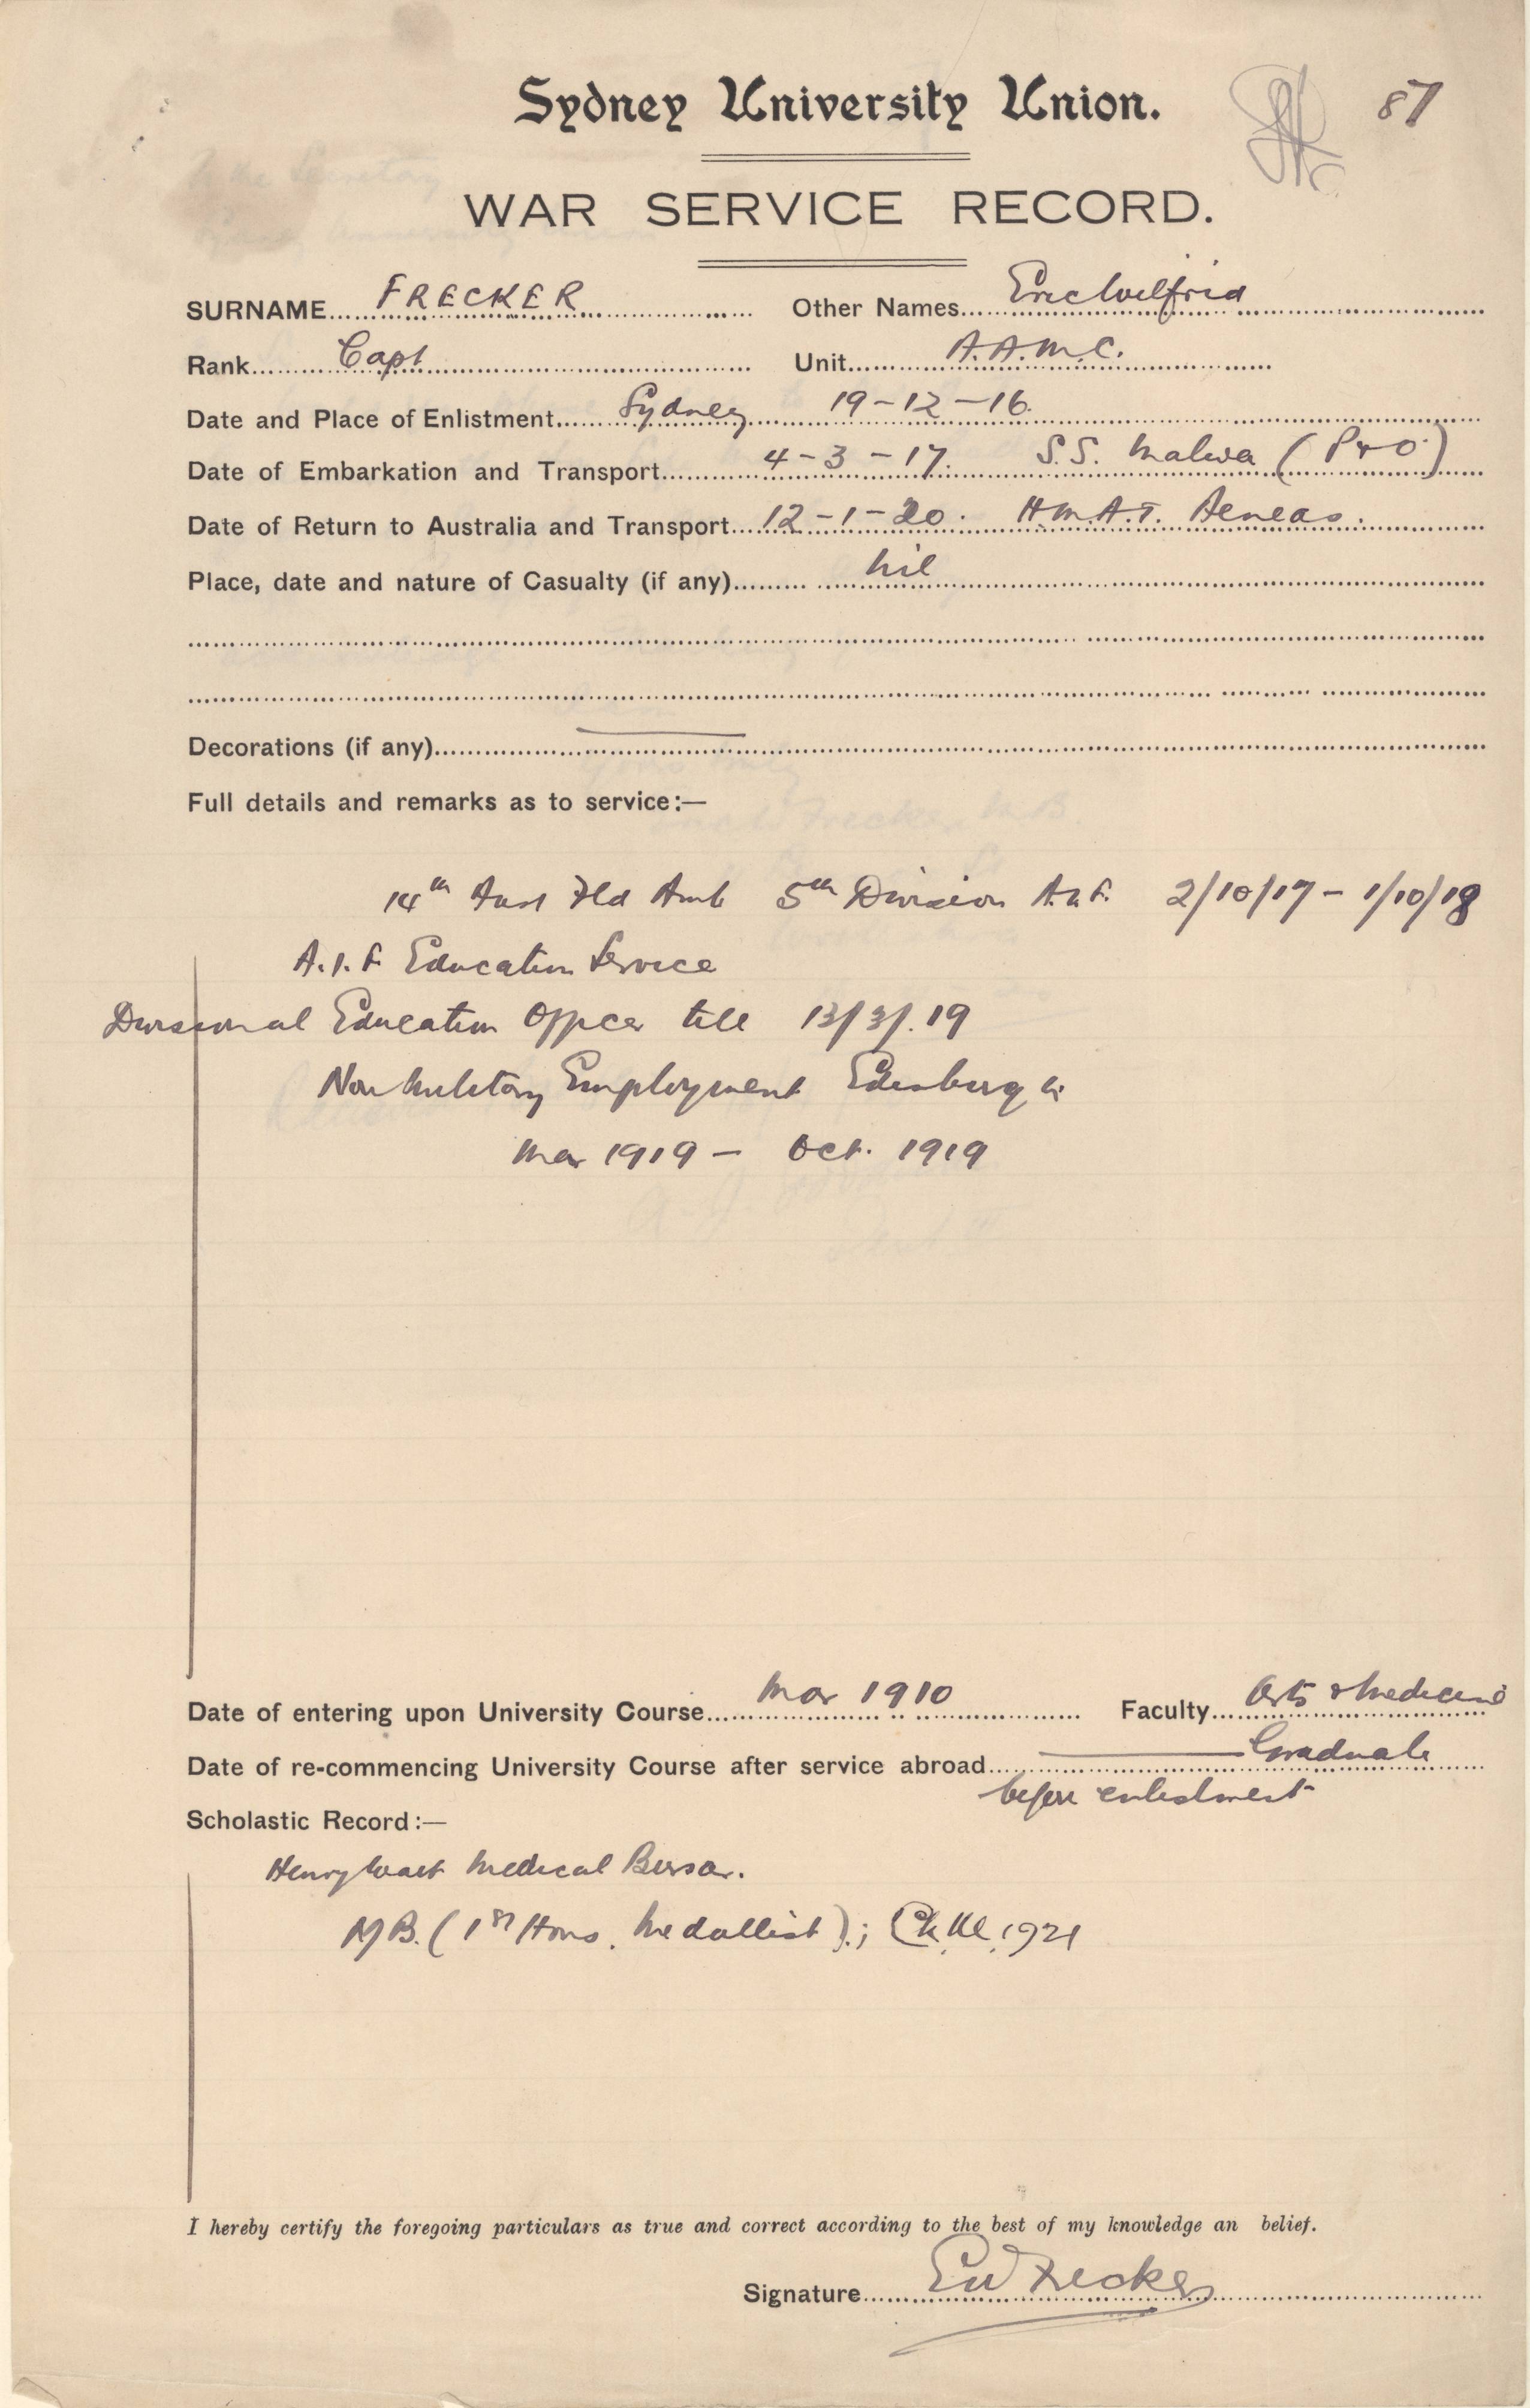 Sydney University Union.
87
WAR SERVICE RECORD.
SURNAME FRECKER Other Names Eric Wilfrid
Rank Capt Unit A.A.M.C.
Date and Place of Enlistment Sydney 19-12-16.
Date of Embarkation and Transport 4-3-17. S.S. Malwa (P&O.)
Date of Return to Australia and Transport 12-1-20. H.M.A.T. Aeneas.
Place, date and nature of Casualty (if any) Nil
Decorations (if any)
Full details and remarks as to service:—
14th Aust Fld Amb 5th Division A.I.F. 2/10/17 - 1/10/18
A.I.F Education Service
Divisional Education Officer till 13/3/.19
Non Military Employment Edinburgh
Mar 1919 - Oct. 1919
Date of entering upon University Course Mar 1910 Faculty Arts & Medicine
Date of re-commencing University Course after service abroad — Graduate
before enlistment
Scholastic Record:—
Henry Wait Medical Bursar.
MB. (1st Hons. Medallist).; Ch.M. 1921
I hereby certify the foregoing particulars as true and correct according to the best of my knowledge an belief.
Signature EW Frecker